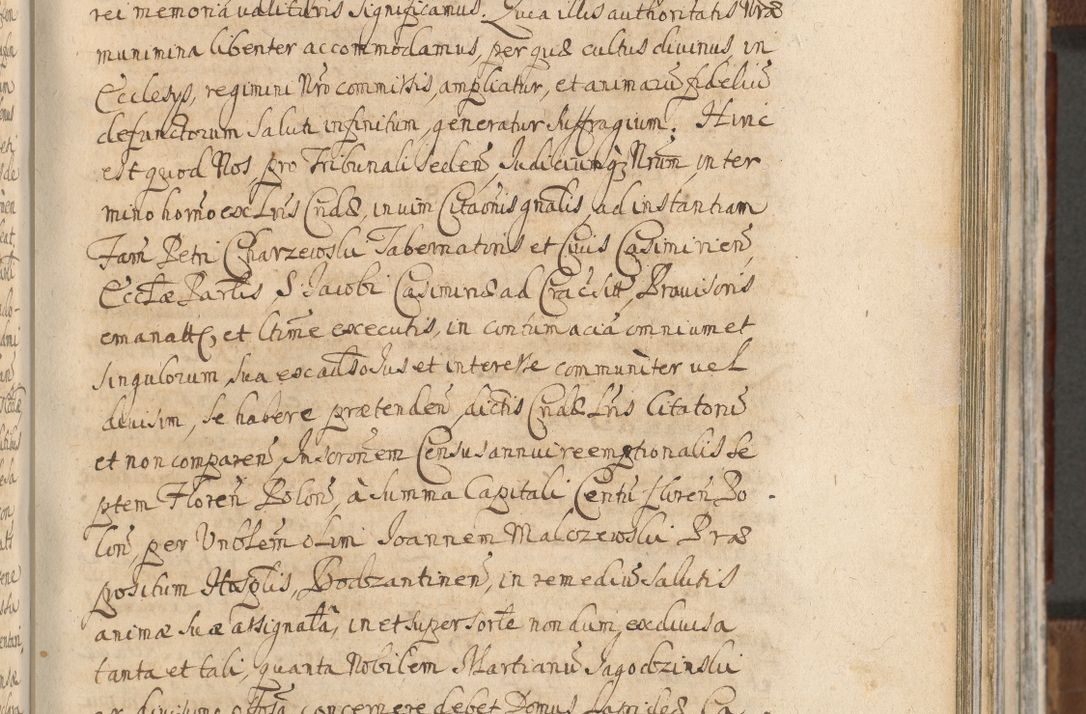 rei memoria valituris significamus. Quia illis authoritatis Nræ
munimina libenter accommodamus, per quæ cultus divinus, in
Ecclesys, regimini Nro commissis, ampliatur, et animarū fidelium
defunctorum Saluti infinitum generatur Suffragium. Hinc
est quod Nos, pro Tribunali Seden, Judiciumq Nrum, in ter
mino horno ex Lris Cndæ, in vim Citaonis gnalis, ad instantiam
Fam Petri Charzewski Tabernatoris et Civis Casimirien,
Ecctæ Partlis, S. Jacobi Casimiriæ ad Crac sitt, Provisoris
emanatt, et Ltime executis, in contumaciā omnium et
singulorum, sua ex causa Jus et interesse communiter vel
divisim, se habere prætenden, dictis Cndæ Lris Citatoriis
et non comparen, Inscronem Census annui reemptionalis Se
ptem Floren Polon, à Summa Capitali Centū floren, Po
lon, per Vnblem olim Joannem Malczewski Præ
positum Hosplis, Bodzantinen, in remediū salutis
animæ suæ assignata, in et super sorte non dum, exdivisa
tanta et tali, quanta Nobilem Martianū Jagodzinski
ex divisione concernere debet Domus Lapideæ Ca